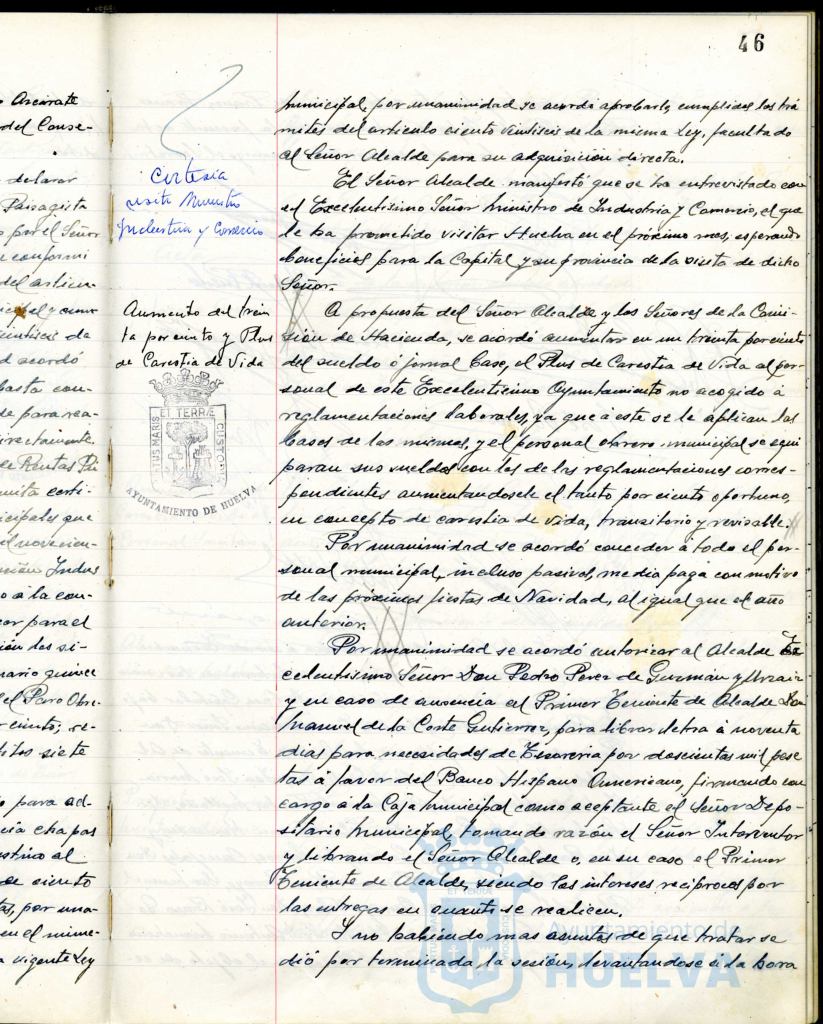 46
o Azcárate
del Conse-
delarar
Paisagista
o por el Señor
conformi
del articu-
d acordó
basta con-
de para rea-
irectamente.
de Rentas Pú
mita certi-
icipales que
el novecien-
Indus
o a la con-
cor para el
ión los si-
nario quince
el Paro Obre-
r ciento; re-
ditos siete
o para ad-
cia chapas
destino al
de ciento
tas, por una-
en el mime-
a vigente Ley
Cortesia
visita Ministro
Industria y Comercio
Aumento del trein
ta por ciento y Plus
de Carestia de Vida
PORTUS MARIS ET TERRÆ CUSTODIA
AYUNTAMIENTO DE HUELVA
municipal, por unanimidad se acordó aprobarlo, cumplidos los trá
mites del articulo ciento veintiseis de la misma Ley, facultado
al Señor Alcalde para su adquisición directa.
El Señor Alcalde manifestó que se ha entrevistado con
el Excelentisimo Señor Ministro de Industria y Comercio, el que
le ha prometido visitar Huelva en el próximo mes, esperando
beneficios para la Capital y su provincia de la visita de dicho
Señor.
A propuesta del Señor Alcalde y los Señores de la Comi-
sión de Hacienda, se acordó aumentar en un treinta por ciento
del sueldo ó jornal base, el Plus de Carestia de Vida al per-
sonal de este Excelentisimo Ayuntamiento no acogido á
reglamentaciones laborales, ya que á este se le aplican las
bases de las mismas, y el personal obrero municipal se equi
paran sus sueldos con los de las reglamentaciones corres-
pendientes aumentandosele el tanto por ciento oportuno,
en concepto de carestia de vida, transitorio y revisable.
Por unanimidad se acordó conceder á todo el per-
sonal municipal, incluso pasivos, media paga con motivo
de las próximas fiestas de Navidad, al igual que el año
anterior.
Por unanimidad se acordó autorizar al Alcalde Ex
celentisimo Señor Don Pedro Perez de Guzmán y Urzaiz
y en caso de ausencia al Primer Teniente de Alcalde Don
Manuel de la Corte Gutierrez, para librar letra á noventa
dias para necesidades de Tesoreria por doscientas mil pese
tas á favor del Banco Hispano Americano, firmando con
cargo á la Caja Municipal como aceptante el Señor Depo-
sitario Municipal, tomando razón el Señor Interventor
y librando el Señor Alcalde o, en su caso el Primer
Teniente de Alcalde, siendo los intereses reciprocos por
las entregas en cuanto se realicen.
Y no habiendo mas asuntos de que tratar se
dió por terminada la sesión, levantandose á la hora
Ayuntamiento de
HUELVA